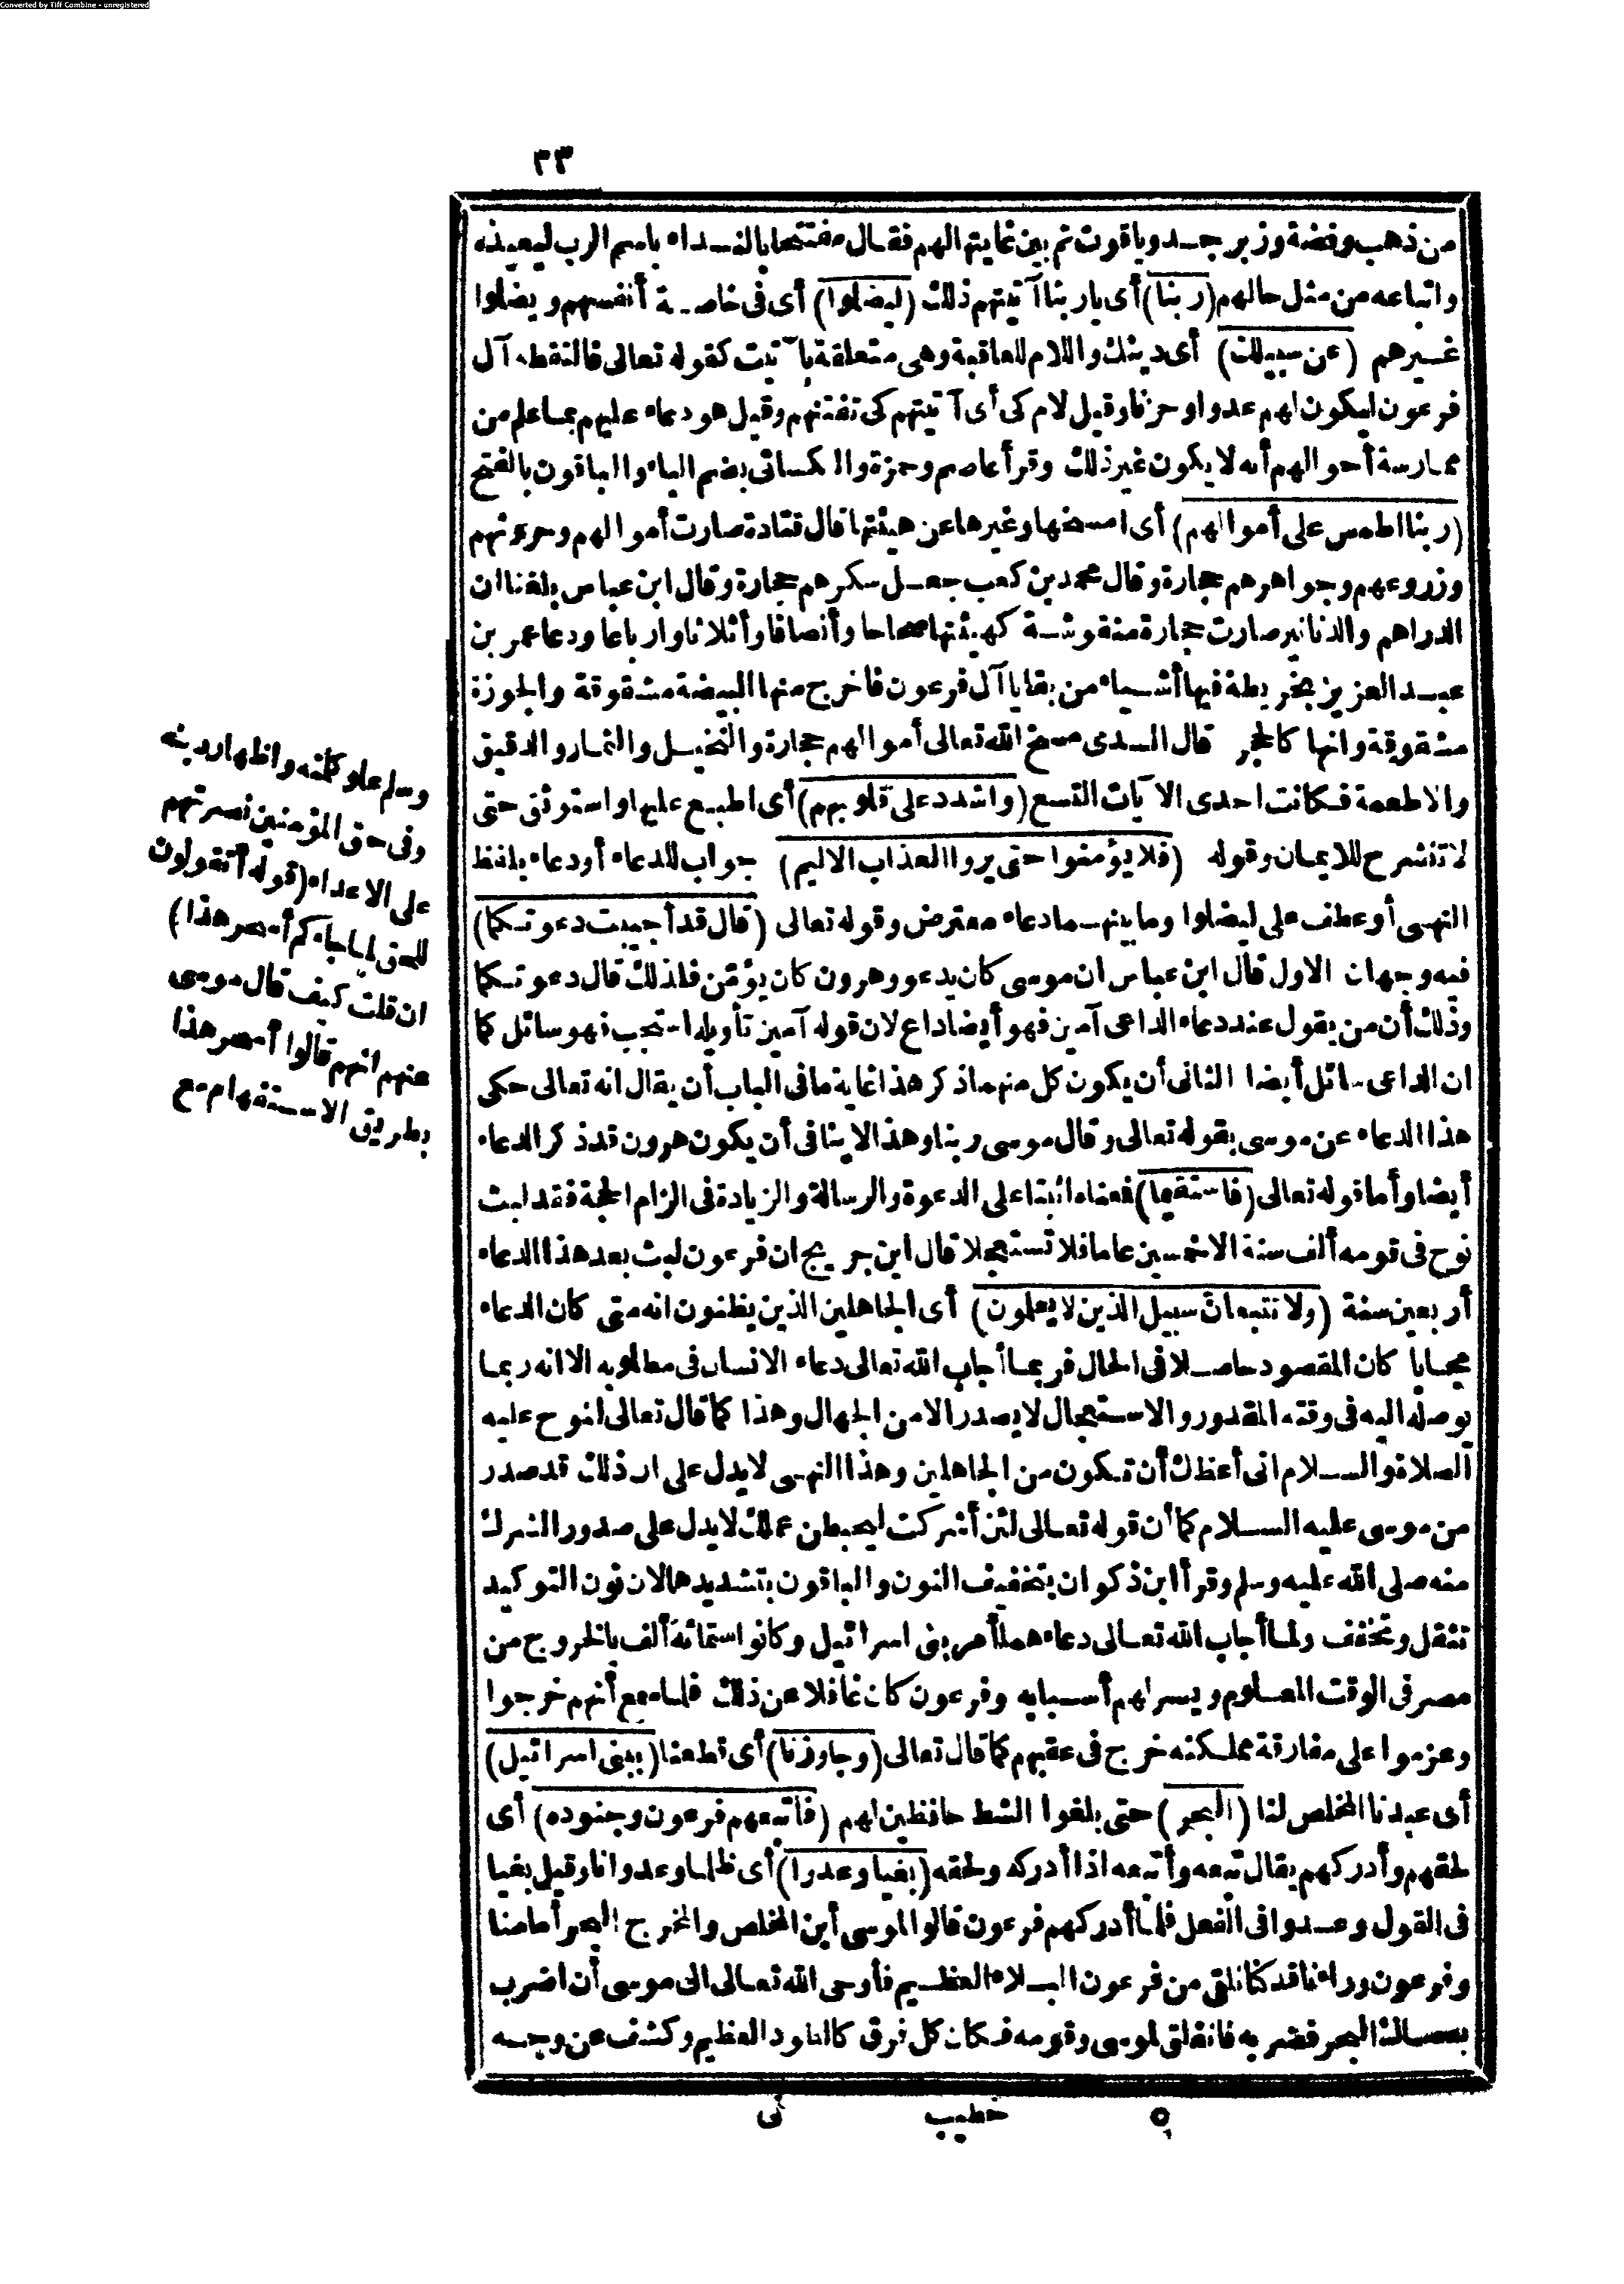 Converted by Tiff Combine - unregistered
٣٣
من ذهب وفضة وزبرجد وياقوت ثم بين غايتها لهم فقال مفتتحا بالنداء باسم الرب ليعيذه
واتباعه من مثل حالهم (ربنا) أى ياربنا آتيتهم ذلك (ليضلوا) أى فى خاصة أنفسهم ويضلوا
غيرهم (عن سبيلك) أى دينك واللام للعاقبة وهى متعلقة بآتيت كقوله تعالى فالتقطه آل
فرعون ليكون لهم عدوا وحزنا وقيل لام كى أى آتيتهم كى تفتنهم وقيل هو دعاء عليهم بما علم من
ممارسة أحوالهم أنه لا يكون غير ذلك وقرأ عاصم وحمزة والكسائى بضم الياء والباقون بالفتح
(ربنا اطمس على أموالهم) أى امسخها وغيرها عن هيئتها قال قتادة صارت أموالهم وحروثهم
وزروعهم وجواهرهم حجارة وقال محمد بن كعب جعل سكرهم حجارة وقال ابن عباس بلغنا ان
الدراهم والدنانير صارت حجارة منقوشة كهيئتها صحاحا وأنصافا وأثلاثا وارباعا ودعا عمر بن
عبد العزيز بخريطة فيها أشياء من بقايا آل فرعون فاخرج منها البيضة مشقوقة والجوزة
مشقوقة وانها كالحجر قال السدى مسخ الله تعالى أموالهم حجارة والنخيل والثمار والدقيق
والاطعمة فكانت احدى الآيات التسع (واشدد على قلوبهم) أى اطبع عليها واستوثق حتى
لا تنشرح للايمان وقوله (فلا يؤمنوا حتى يروا العذاب الاليم) جواب للدعاء أو دعاء بلفظ
النهى أو عطف على ليضلوا وما بينهما دعاء معترض وقوله تعالى (قال قد أجيبت دعوتكما)
فيه وجهان الاول قال ابن عباس ان موسى كان يدعو وهرون كان يؤمّن فلذلك قال دعوتكما
وذلك أن من يقول عند دعاء الداعى آمين فهو أيضا داع لان قوله آمين تأويله استجب فهو سائل كما
ان الداعى سائل أيضا الثانى أن يكون كل منهما ذكر هذا غاية ما فى الباب أن يقال انه تعالى حكى
هذا الدعاء عن موسى بقوله تعالى وقال موسى ربنا وهذا لا ينافى أن يكون هرون قد ذكر الدعاء
أيضا وأما قوله تعالى (فاستقيما) فمعناه اثبتا على الدعوة والرسالة والزيادة فى الزام الحجة فقد لبث
نوح فى قومه ألف سنة الا خمسين عاما فلا تستعجلا قال ابن جريج ان فرعون لبث بعد هذا الدعاء
أربعين سنة (ولا تتبعانّ سبيل الذين لا يعلمون) أى الجاهلين الذين يظنون انه متى كان الدعاء
مجابا كان المقصود حاصلا فى الحال فربما أجاب الله تعالى دعاء الانسان فى مطلوبه الا انه ربما
يوصله اليه فى وقته المقدور والاستعجال لا يصدر الا من الجهال وهذا كما قال تعالى لنوح عليه
الصلاة والسلام انى أعظك أن تكون من الجاهلين وهذا النهى لا يدل على ان ذلك قد صدر
من موسى عليه السلام كما أن قوله تعالى لئن أشركت ليحبطن عملك لا يدل على صدور الشرك
منه صلى الله عليه وسلم وقرأ ابن ذكوان بتخفيف النون والباقون بتشديدها لان نون التوكيد
تثقل وتخفف ولما أجاب الله تعالى دعاءهما أمر بنى اسرائيل وكانوا ستمائة ألف بالخروج من
مصر فى الوقت المعلوم ويسر لهم أسبابه وفرعون كان غافلا عن ذلك فلما سمع أنهم خرجوا
وعزموا على مفارقة مملكته خرج فى عقبهم كما قال تعالى (وجاوزنا) أى قطعنا (ببنى اسرائيل)
أى عبدنا المخلص لنا (البحر) حتى بلغوا الشط حافظين لهم (فأتبعهم فرعون وجنوده) أى
لحقهم وأدركهم يقال تبعه وأتبعه اذا أدركه ولحقه (بغيا وعدوا) أى ظلما وعدوانا وقيل بغيا
فى القول وعدوا فى الفعل فلما أدركهم فرعون قالوا لموسى أين المخلص والمخرج البحر أمامنا
وفرعون وراءنا قد كنا نلقى من فرعون البلاء العظيم فأوحى الله تعالى الى موسى أن اضرب
بعصاك البحر فضربه فانفلق لموسى وقومه فكان كل فرق كالطود العظيم وكشف عن وجه
٥ خطيب نى
وسلم علو كلمته واظهار دينه
وفى حق المؤمنين نصرتهم
على الاعداء (قوله أتقولون
للحق لما جاءكم أسحر هذا)
ان قلت كيف قال موسى
عنهم انهم قالوا أسحر هذا
بطريق الاستفهام مع